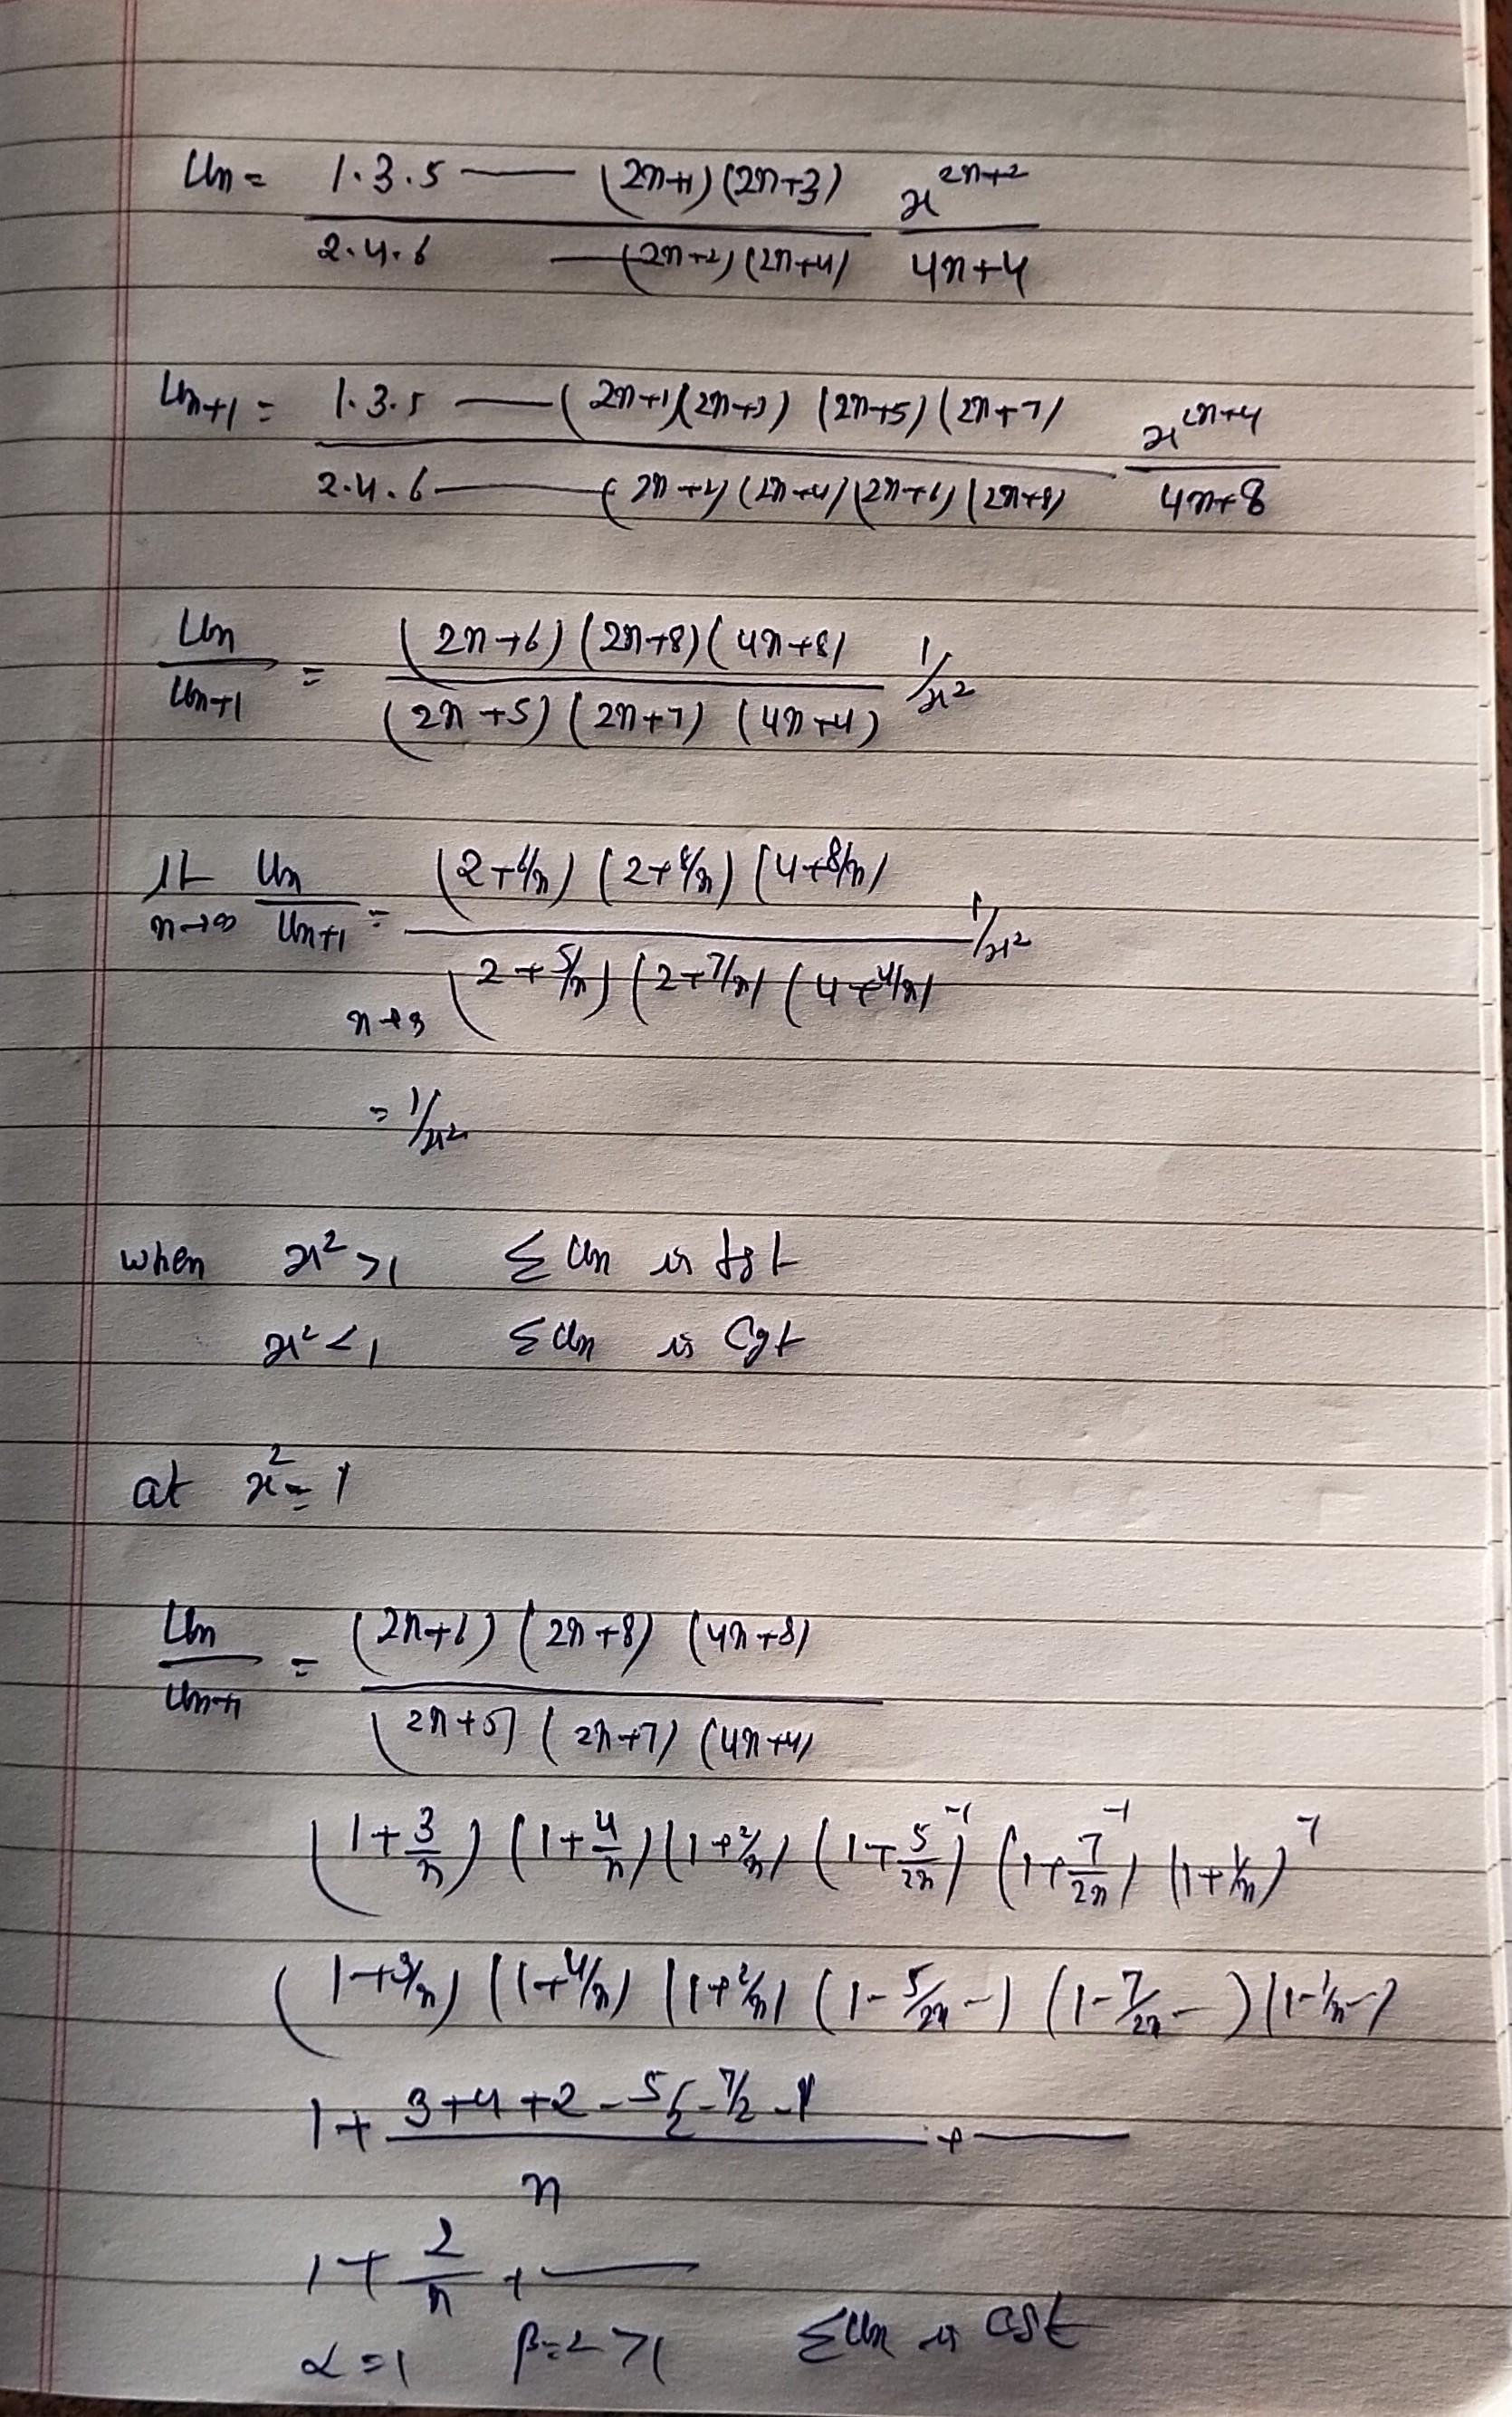 Un = 1.3.5 —— (2n+1)(2n+3) x^2n+2
2.4.6 —— (2n+2)(2n+4) 4n+4
Un+1 = 1.3.5 —— (2n+1)(2n+3) (2n+5)(2n+7) x^2n+4
2.4.6 —— (2n+2)(2n+4)(2n+6)(2n+8) 4n+8
Un / Un+1 = (2n+6)(2n+8)(4n+8) / (2n+5)(2n+7)(4n+4) 1/x²
lt n→∞ Un / Un+1 = (2+6/n)(2+8/n)(4+8/n) / (2+5/n)(2+7/n)(4+4/n) 1/x²
n→∞
= 1/x²
when x² >1 Σ Un is dgt
x² < 1 Σ Un is Cgt
at x² = 1
Un / Un+1 = (2n+6)(2n+8)(4n+8) / (2n+5)(2n+7)(4n+4)
(1+3/n)(1+4/n)(1+2/n)(1+5/2n)^-1 (1+7/2n)^-1 (1+1/n)^-1
(1+3/n)(1+4/n)(1+2/n)(1-5/2n -)(1-7/2n -)(1-1/n -)
1+ 3+4+2-5/2-7/2-1 / n + ——
1+ 2/n + ——
α=1 β=2 >1 ΣUn is cgt